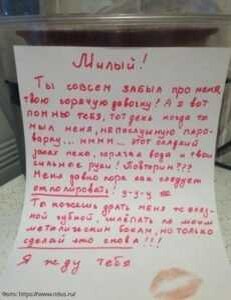 Милый!
Ты совсем забыл про меня,
твою горячую девочку! А я вот
помню тебя, тот день когда ты
мыл меня, непослушную паро-
варку... ммм... этот сладкий
запах пека, горячая вода и твои
сильные руки! Повторим???
Меня давно пора как следует
отполировать! э-у-у
Ты можешь драть меня желез-
ной губкой, шлёпать по моим
металическим бокам, но только
сделай это снова!!!
Я жду тебя
Фото: https://www.ridus.ru/